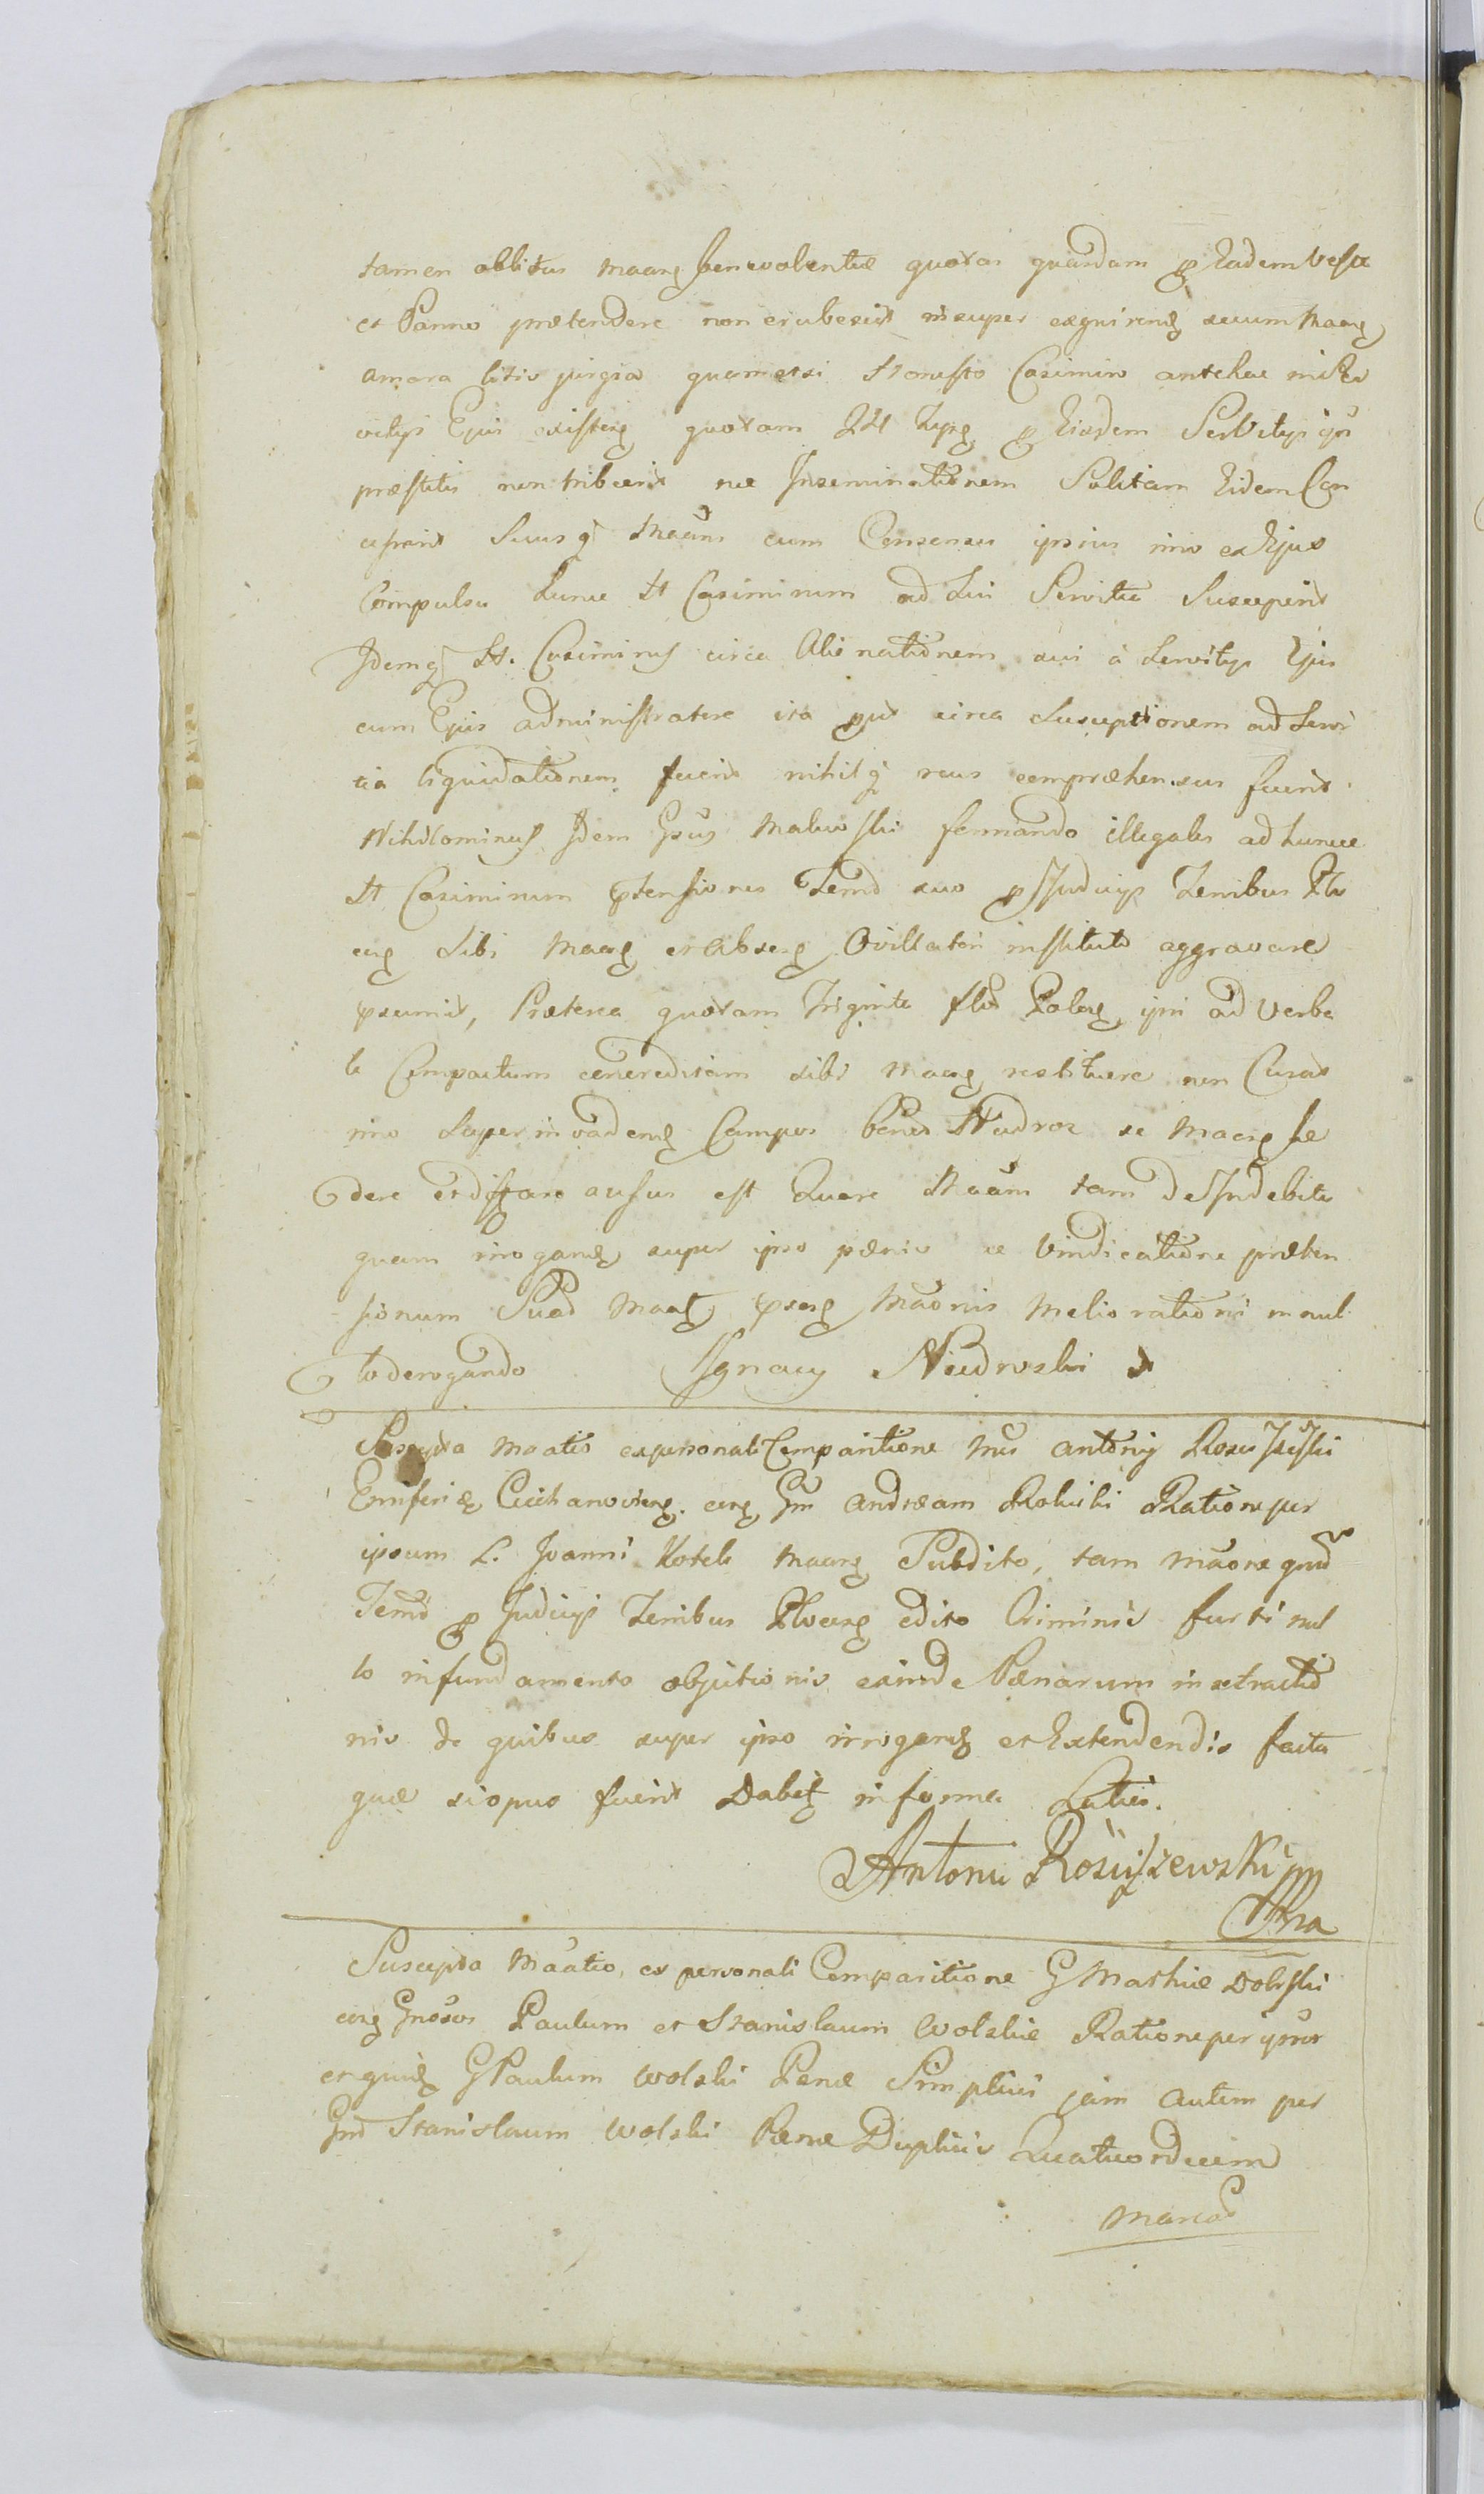 tamen oblitus maang benevolentiæ quotas quasdam p Eadem Veste
et Panno prætendere non erubescit insuper exquirend secum Maang
amara litis jurgia quametsi Honesto Casimiro antehac in Ser
vitys Ejus existeng quotam 224 Tynf p Eisdem Servitys ipsi
præstitis non tribuerit nec Inseminationem Solitam Eidem Con
cesserit Suusq Maans cum Consensu ipsius imo ex Ejus
Compulsu Hunc H Casimirum ad Sui Servitia Susceperit
Idemq H. Casimirus circa Alienationem sui à Servitys Ejus
cum Ejus administratore ita put circa Susceptionem ad Servi
tia liquidationem fecerit nihilq reus compræhensus fuerit
Nihilominus Idem Gsus Malewski formando illegales ad hunce
H Casimirum ptensiones Temd suo p Judicys Terribus
cug Sibi Maang et Abserg Ovillatori instituto aggravare
psumit, Præterea quotam Triginta flor Polong ipsi ad Verba
le Compactum concreditam sibi maang restituere non Curat
imo Superinvadeng Campos bonor Niedroz se Maang læ
dere et diffamare ausus est Quare Maam tam de Indebite
quam irrogand super ipso pænis ac Vindicatione præten
sionum Suad Maang pserg Maonis Melioratione in nul
lo derogando Ignacy Niedroski
Suscepta Maatio ex personali Comparitione Mci Antonij Roscizewski
Ensiferi Ciechanovieng cong Gm Andream Rokicki Ratione per
ipsum L. Joanni Kotek Maang Subdito, tam Maone quam
Temd p Judicys Terribus edito Criminis furti nul
lo in fundamento objectionis exinde Pænarum in extractio
nis de quibus super ipso irrogand et Extendendis facta
quæ si opus fuerit Dabit in forma Latiori.
Antoni Rościszewski mp
Suscepta Maatio, ex personali Comparitione G Mathiæ Dolski
cong Gnosos Paulum et Stanislaum Wolskie Ratione per ipsos
et quid G Paulum Wolski Pænæ Simplicis jam autem per
Gnd Stanislaum Wolski Pænæ Duplicis Quatuordecim
marcas